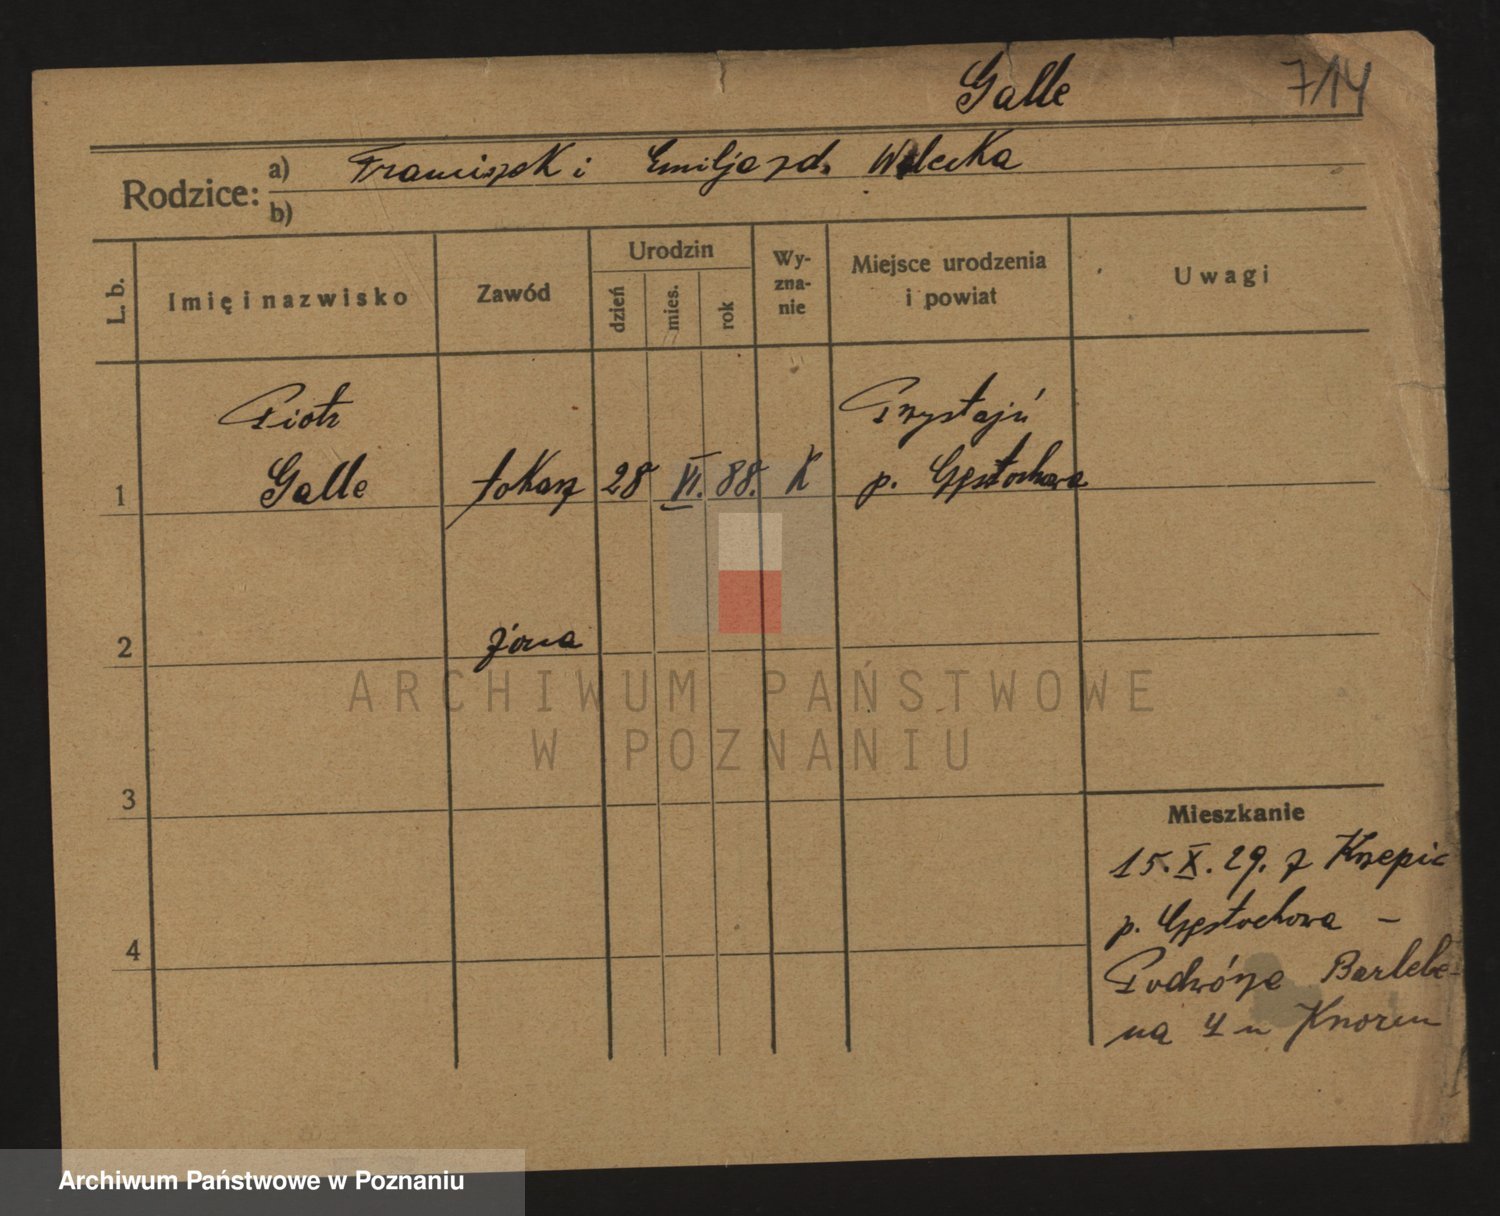 Galle 7/14
Rodzice: a) Franciszek i Emilja zd. Walecka
b)
L. b. Imię i nazwisko Zawód Urodzin dzień mies. rok Wyznanie Miejsce urodzenia i powiat Uwagi
Piotr Przystajń
1 Galle tokarz 28 VI. 88. K p. Częstochowa
2 żona
ARCHIWUM PAŃSTWOWE
W POZNANIU
3
Mieszkanie
15.X.29. z Krzepic
p. Częstochowa –
4
Podwórze Barlebe-
na 4 u Knoren
Archiwum Państwowe w Poznaniu